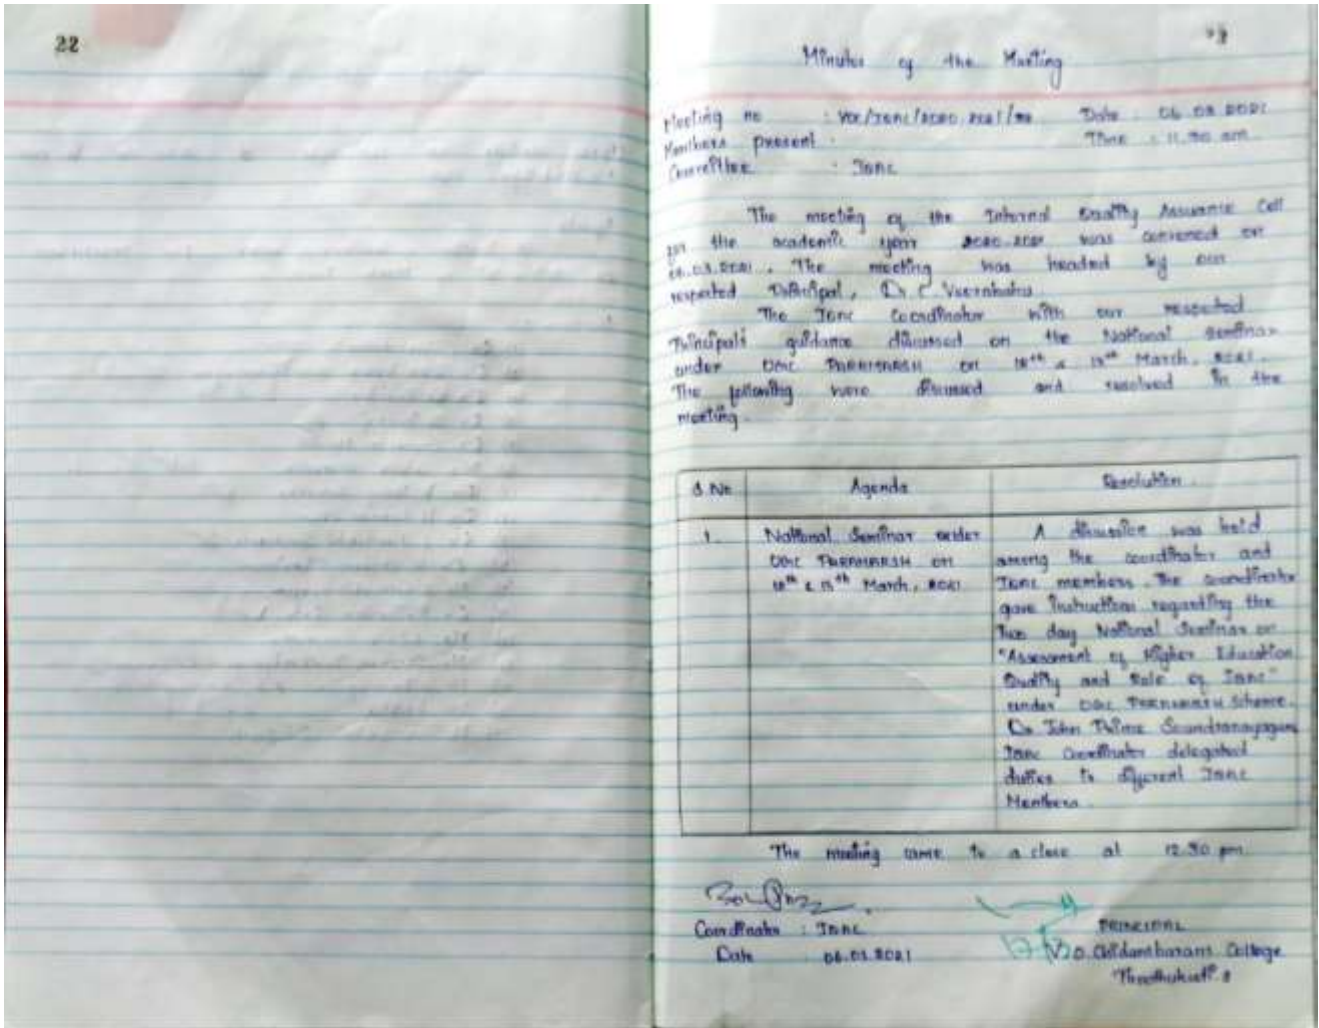 22
Minutes of the Meeting
Meeting no : VOC/IQAC/2020-2021/ Date : 06.03.2021
Members present : Time : 11.30 am
Committee : IQAC
The meeting of the Internal Quality Assurance Cell
for the academic year 2020-2021 was convened on
06.03.2021. The meeting was headed by our
respected Principal, Dr. C. Veerabahu
The IQAC Coordinator with our respected
Principal's guidance discussed on the National Seminar
under UGC PARAMARSH on & March, 2021.
The following were discussed and resolved in the
meeting.
S.No Agenda Resolution
1. National Seminar under
UGC PARAMARSH on
& March, 2021
A discussion was held
among the coordinator and
IQAC members. The coordinator
gave instructions regarding the
Two day National Seminar on
"Assessment of Higher Education
Quality and Role of IQAC"
under UGC PARAMARSH Scheme.
Dr. John Prince Soundranayagam
IQAC Coordinator delegated
duties to different IQAC
Members.
The meeting came to a close at 12.30 pm
Coordinator : IQAC
Date 06.03.2021
PRINCIPAL
V.O. Chidambaram College
Thoothukudi-8